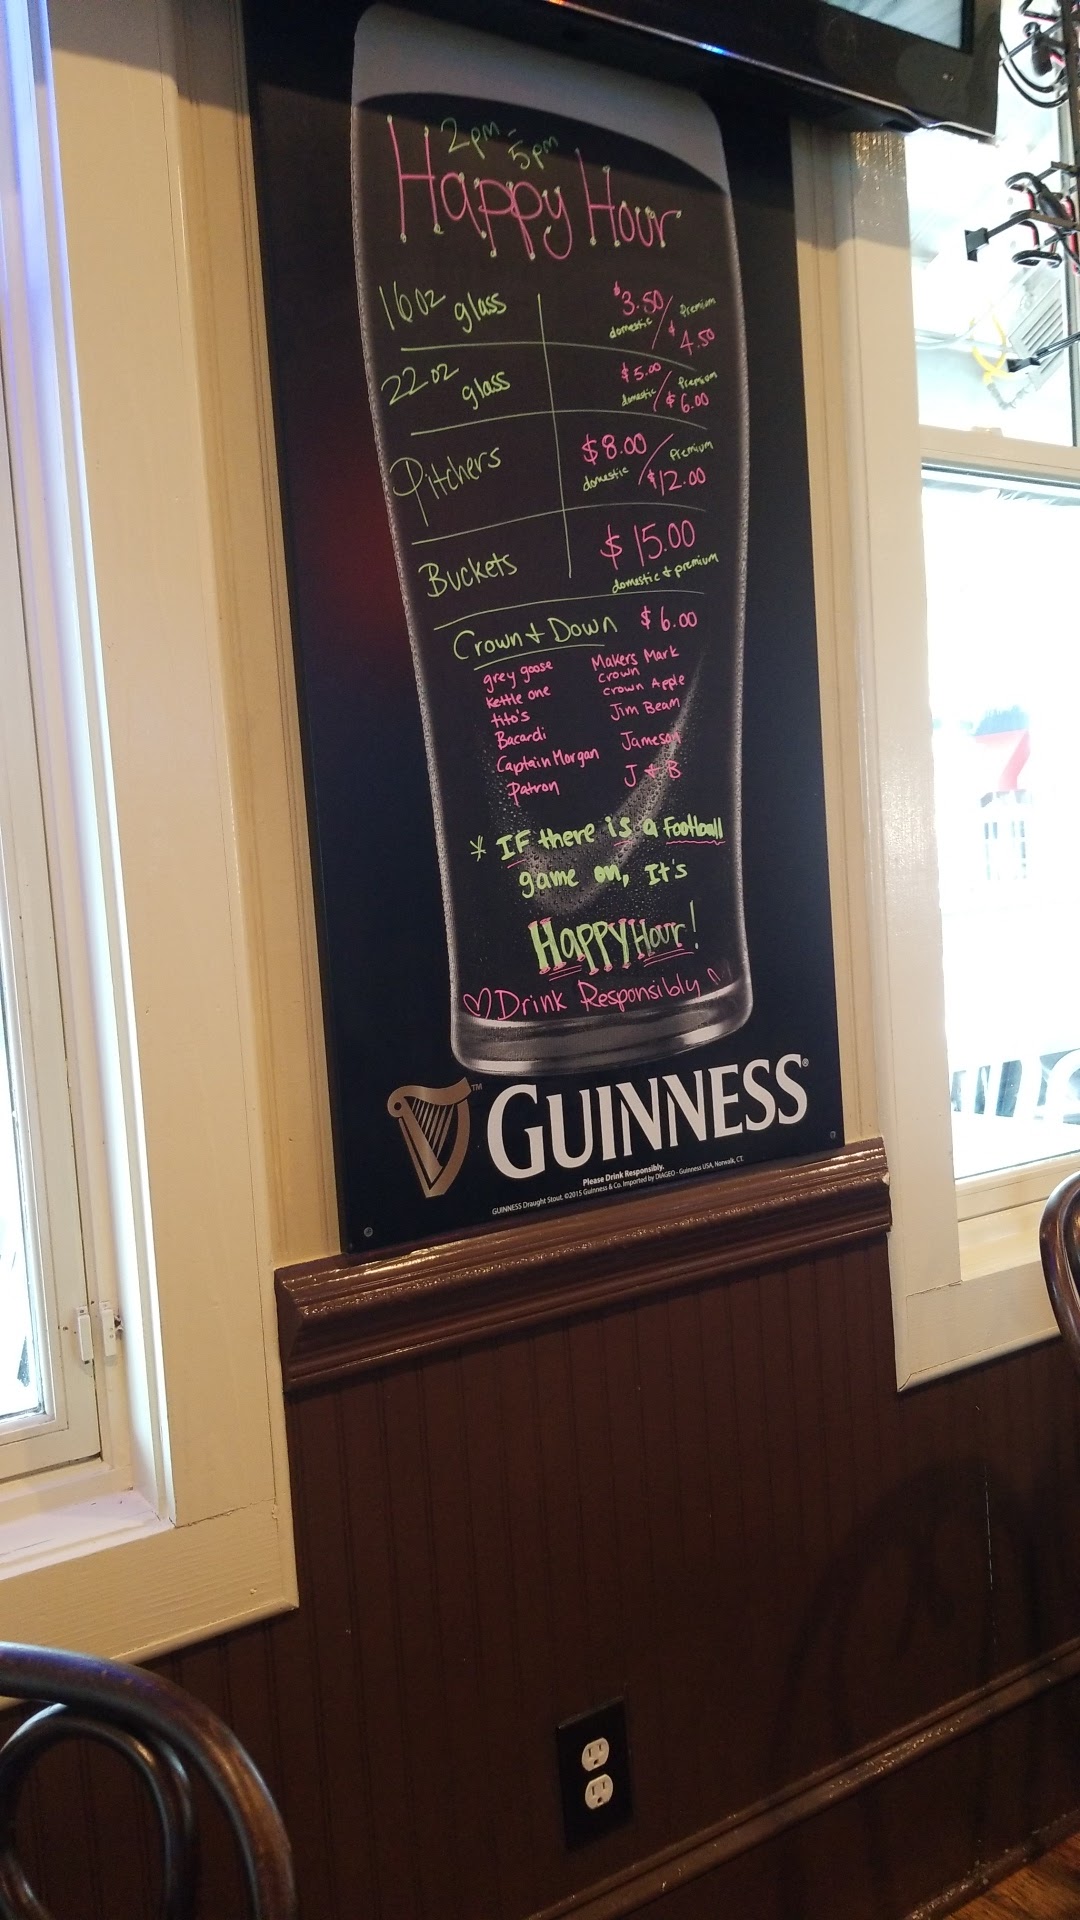 2pm - 5pm
Happy Hour
16oz glass $3.50 domestic / Premium $4.50
22oz glass $5.00 domestic / Premium $6.00
Pitchers $8.00 domestic / Premium $12.00
Buckets $15.00 domestic + premium
Crown + Down $6.00
grey goose
Kettle one
tito's
Bacardi
Captain Morgan
Patron
Makers Mark
crown
crown Apple
Jim Beam
Jameson
J + B
* IF there is a Football
game on, It's
HAPPY Hour!
♡ Drink Responsibly
GUINNESS®
™
Please Drink Responsibly.
GUINNESS Draught Stout. ©2015 Guinness & Co. Imported by DIAGEO - Guinness USA, Norwalk, CT.